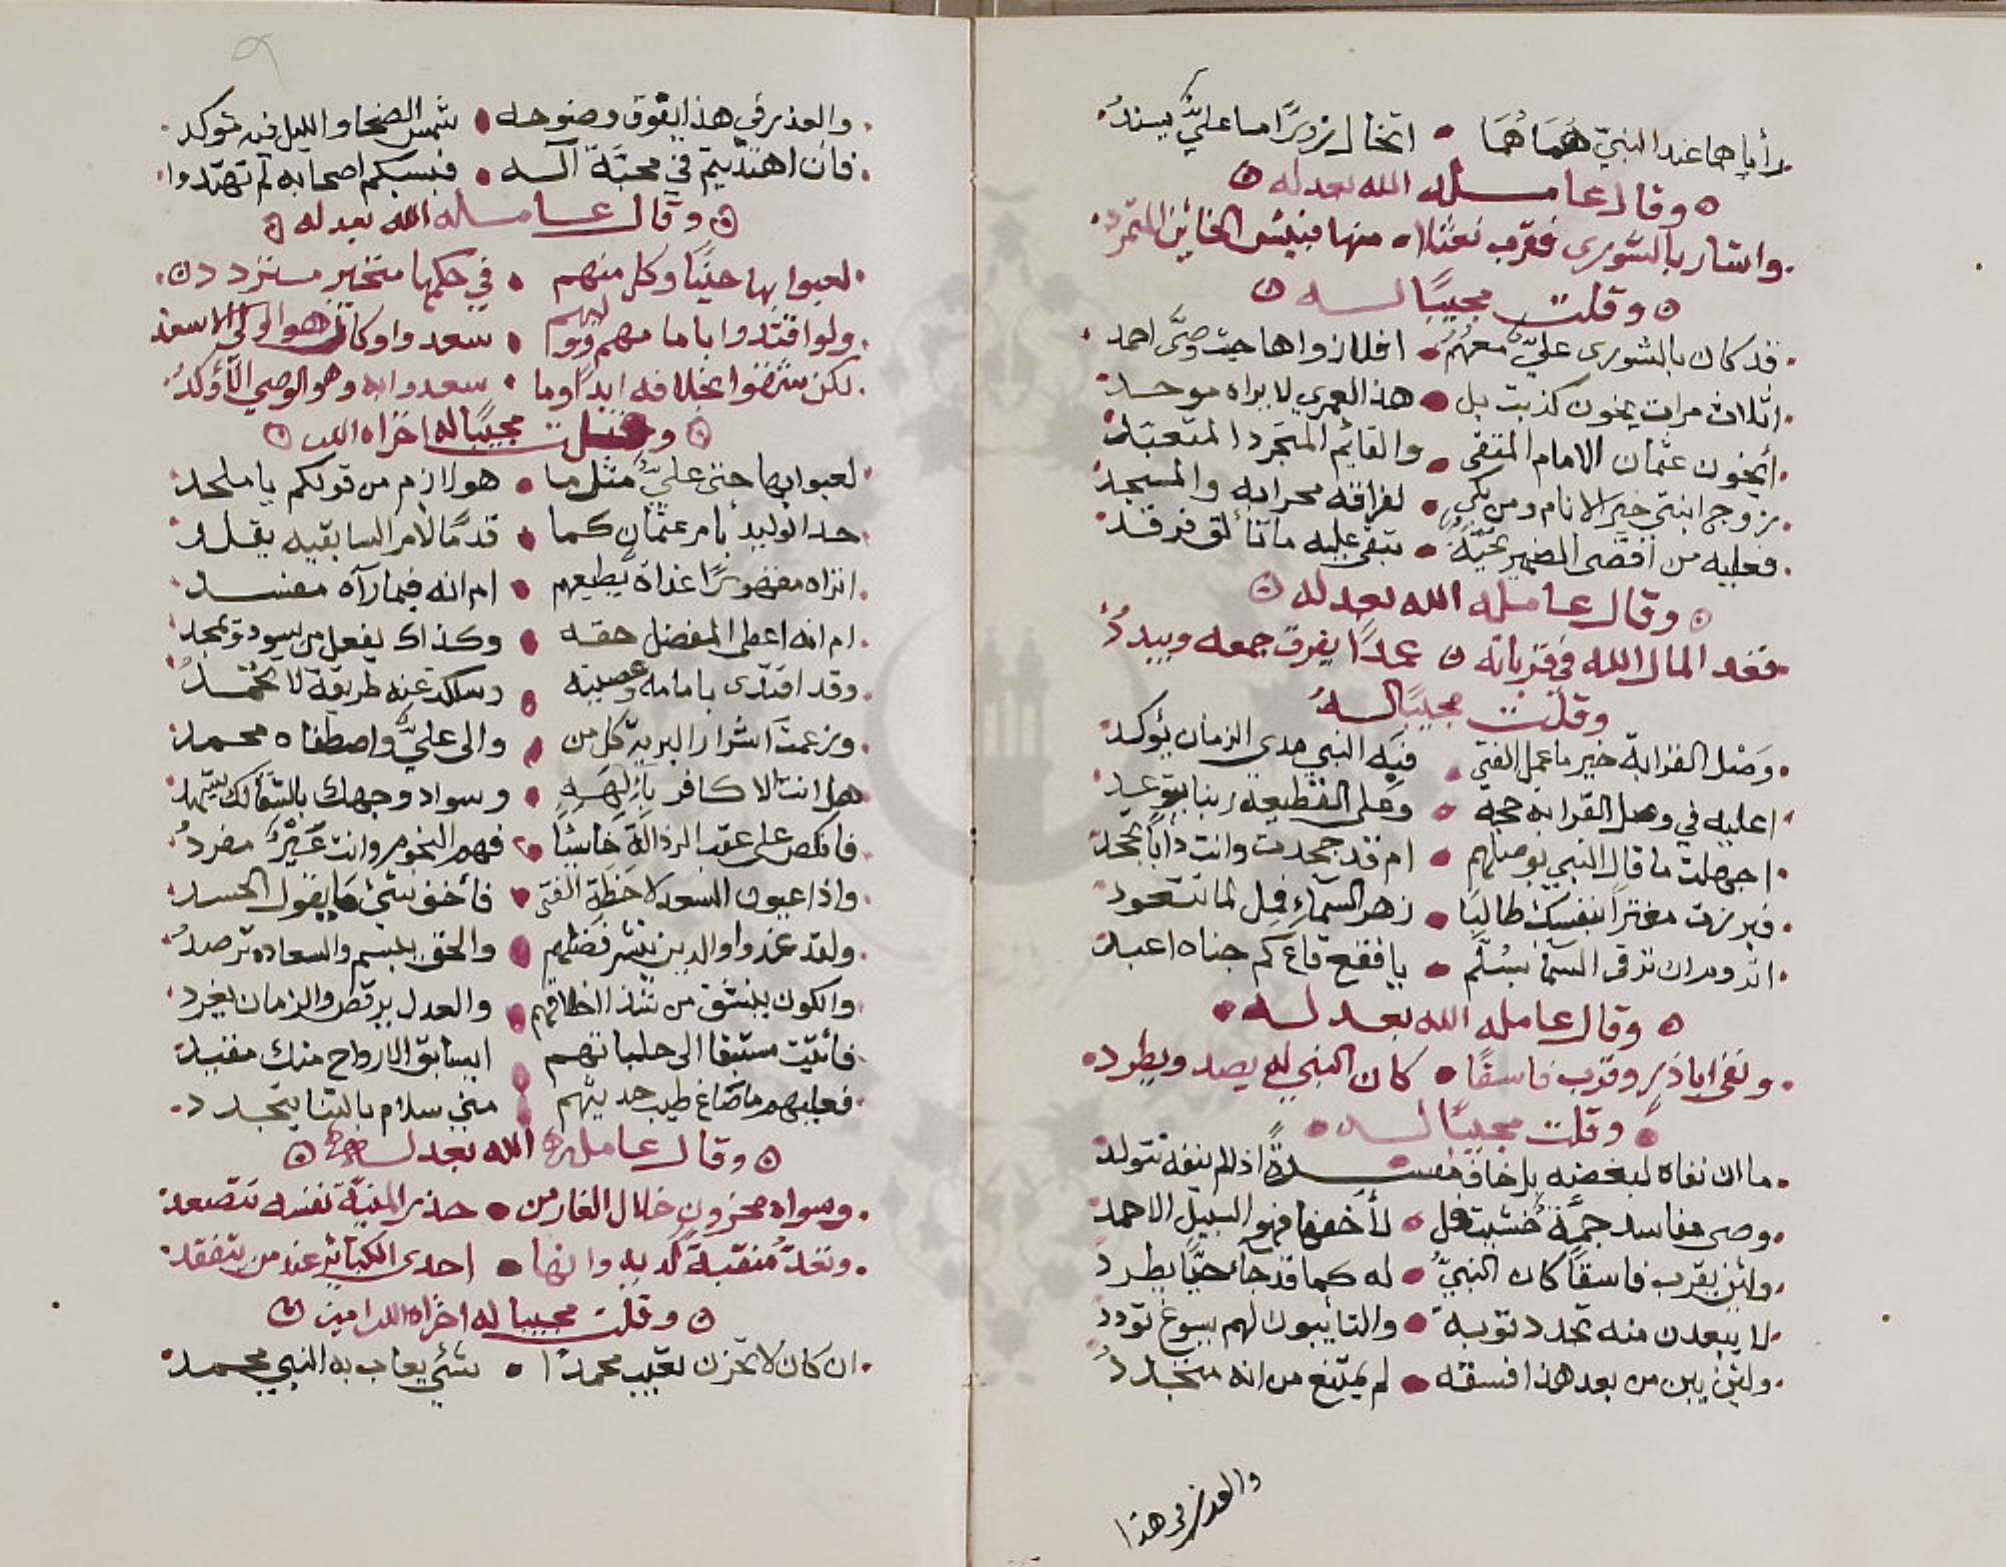 رأياهما عند النبيّ هُمَاهُمَا • اتخال زورًا ما عليٌّ يسندُ
وقال عامله الله بعدله
واشار بالشورى فقرب نعثلا • منها فبئس الخائن المتمرد
وقلت مجيبًا له
قد كان بالشورى عليٌّ معهُمُ • افلا زواها حيث وصَّى احمد
اثلاث مرات يخون كذبت بل • هذا لعمري لا يراه موحد
أيخون عثمان الامام المتقى • والقايم المتجرد المتعبد
زوج ابنتي خير الانام ومن بكى • لفراقه محرابه والمسجد
فعليه من اقصى الضمير تحيّةٌ • تبقى عليه ما تألق فرقد
وقال عامله الله بعدله
فغدا لمال الله في قرباته عمدًا يفرق جمعه ويبددُ
وقلت مجيبًا لهُ
وَصْل القرابة خير ما عمل الفتى • فيه النبي مدى الزمان يؤكد
اعليه في وصل القرابة حجة • وعلى القطيعة ربنا يتوعد
اجهلت ما قال النبي بوصلهم • ام قد جحدت وانت دأبًا تجحد
فبرزت مغترًا بنفسك طالبًا • زهر السماءِ فمِل لما تتعود
اتروم ان ترقى السما بسُلّم • يا فقع قاع كم جناه اعبد
وقال عامله الله بعدله
ونفى اباذر وقرب فاسقًا • كان النبي له يصد ويطرد
وقلت مجيبًا له
ما ان نفاه لبغضه بل خاف مفسدةً اذا لم ينفه تتولد
وصى مفاسد جمة خشيت فهل • لأخفها فهو السبيل الاحمد
ولئن يقرب فاسقًا كان النبيُّ • له كما قد جاء حيًّا يطرد
لا يبعدن منه تجدد توبة • والتايبون لهم يسوغ تودد
ولئن يبن من بعد هذا فسقه • لم يمتنع من انه متجدد
والعذر في هذا
والعذر في هذا يقوق وضوحه • شمس الضحا والليل فيه توكد
فان اهتديتم في محبّة آله • فبسبكم اصحابه لم تهتدوا
وقال عامله الله بعدله
لعبوا بها حينًا وكل منهم • في حكمها متحير متردد
ولو اقتدوا باما مهم ووو لهم • سعدوا وكان هو الولى الاسعد
لكن شقوا بخلافه ابدًا وما • سعدوا به وهو الوصي الأوكدُ
وقلت مجيبًا له اخزاه الله
لعبوا بها حتى عليٌّ مثل ما • هو لازم من قولكم يا ملحد
حد الوليد بامر عثمان كما • قدمًا لامر السابقيه يقلد
اتراه مغرورًا غداة يطيعهم • ام انه فيما رآه مفسد
ام انه اعطى المفضل حقه • وكذاك يفعل من يسود ويمجد
وقد اقتدى بامامه وعصيته • وسلكت عنه طريقة لا تحمد
وزعمت اشرار البرية كل من • والى عليٌّ واصطفاه محمد
هل انت الا كافر بإلهه • وسواد وجهك بالشقا لك يشهد
فانكص على عقب الرذالة خاسئًا • فهم النجوم وانت عَيرٌ مفردُ
واذا عيون السعد لاحظت الفتى • فأخف شيٍ ما يقول الحسد
ولقد غدوا والدين ينشر فضلهم • والحق يبسم والسعاده ترصدُ
والكون ينشق من شذا اخلاقهم • والعدل يرقص والزمان يغرد
فأتيت مستبقا الى حلباتهم • ايسابق الارواح منك مقيد
فعليهم ما ضاع طيب حديثهم • مني سلام بالثنا يتجدد
وقال عامله الله بعدله
وسواه محزون خلال الغار من • حذر المنيّة نفسه تتصعد
وتعدّ مُنقبة لديه وانها • احدى الكبائر عند من يتفقد
وقلت مجيبا له اخزاه الله امين
ان كان لا تحزن تعيب محمدًا • شئٍ يعاب به النبي محمد